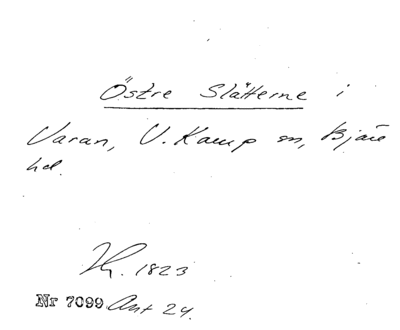 Östre Slätterne i
Varan, V. Karup sn, Bjäre
hd.
1823
Nr 7099 Ant 24.